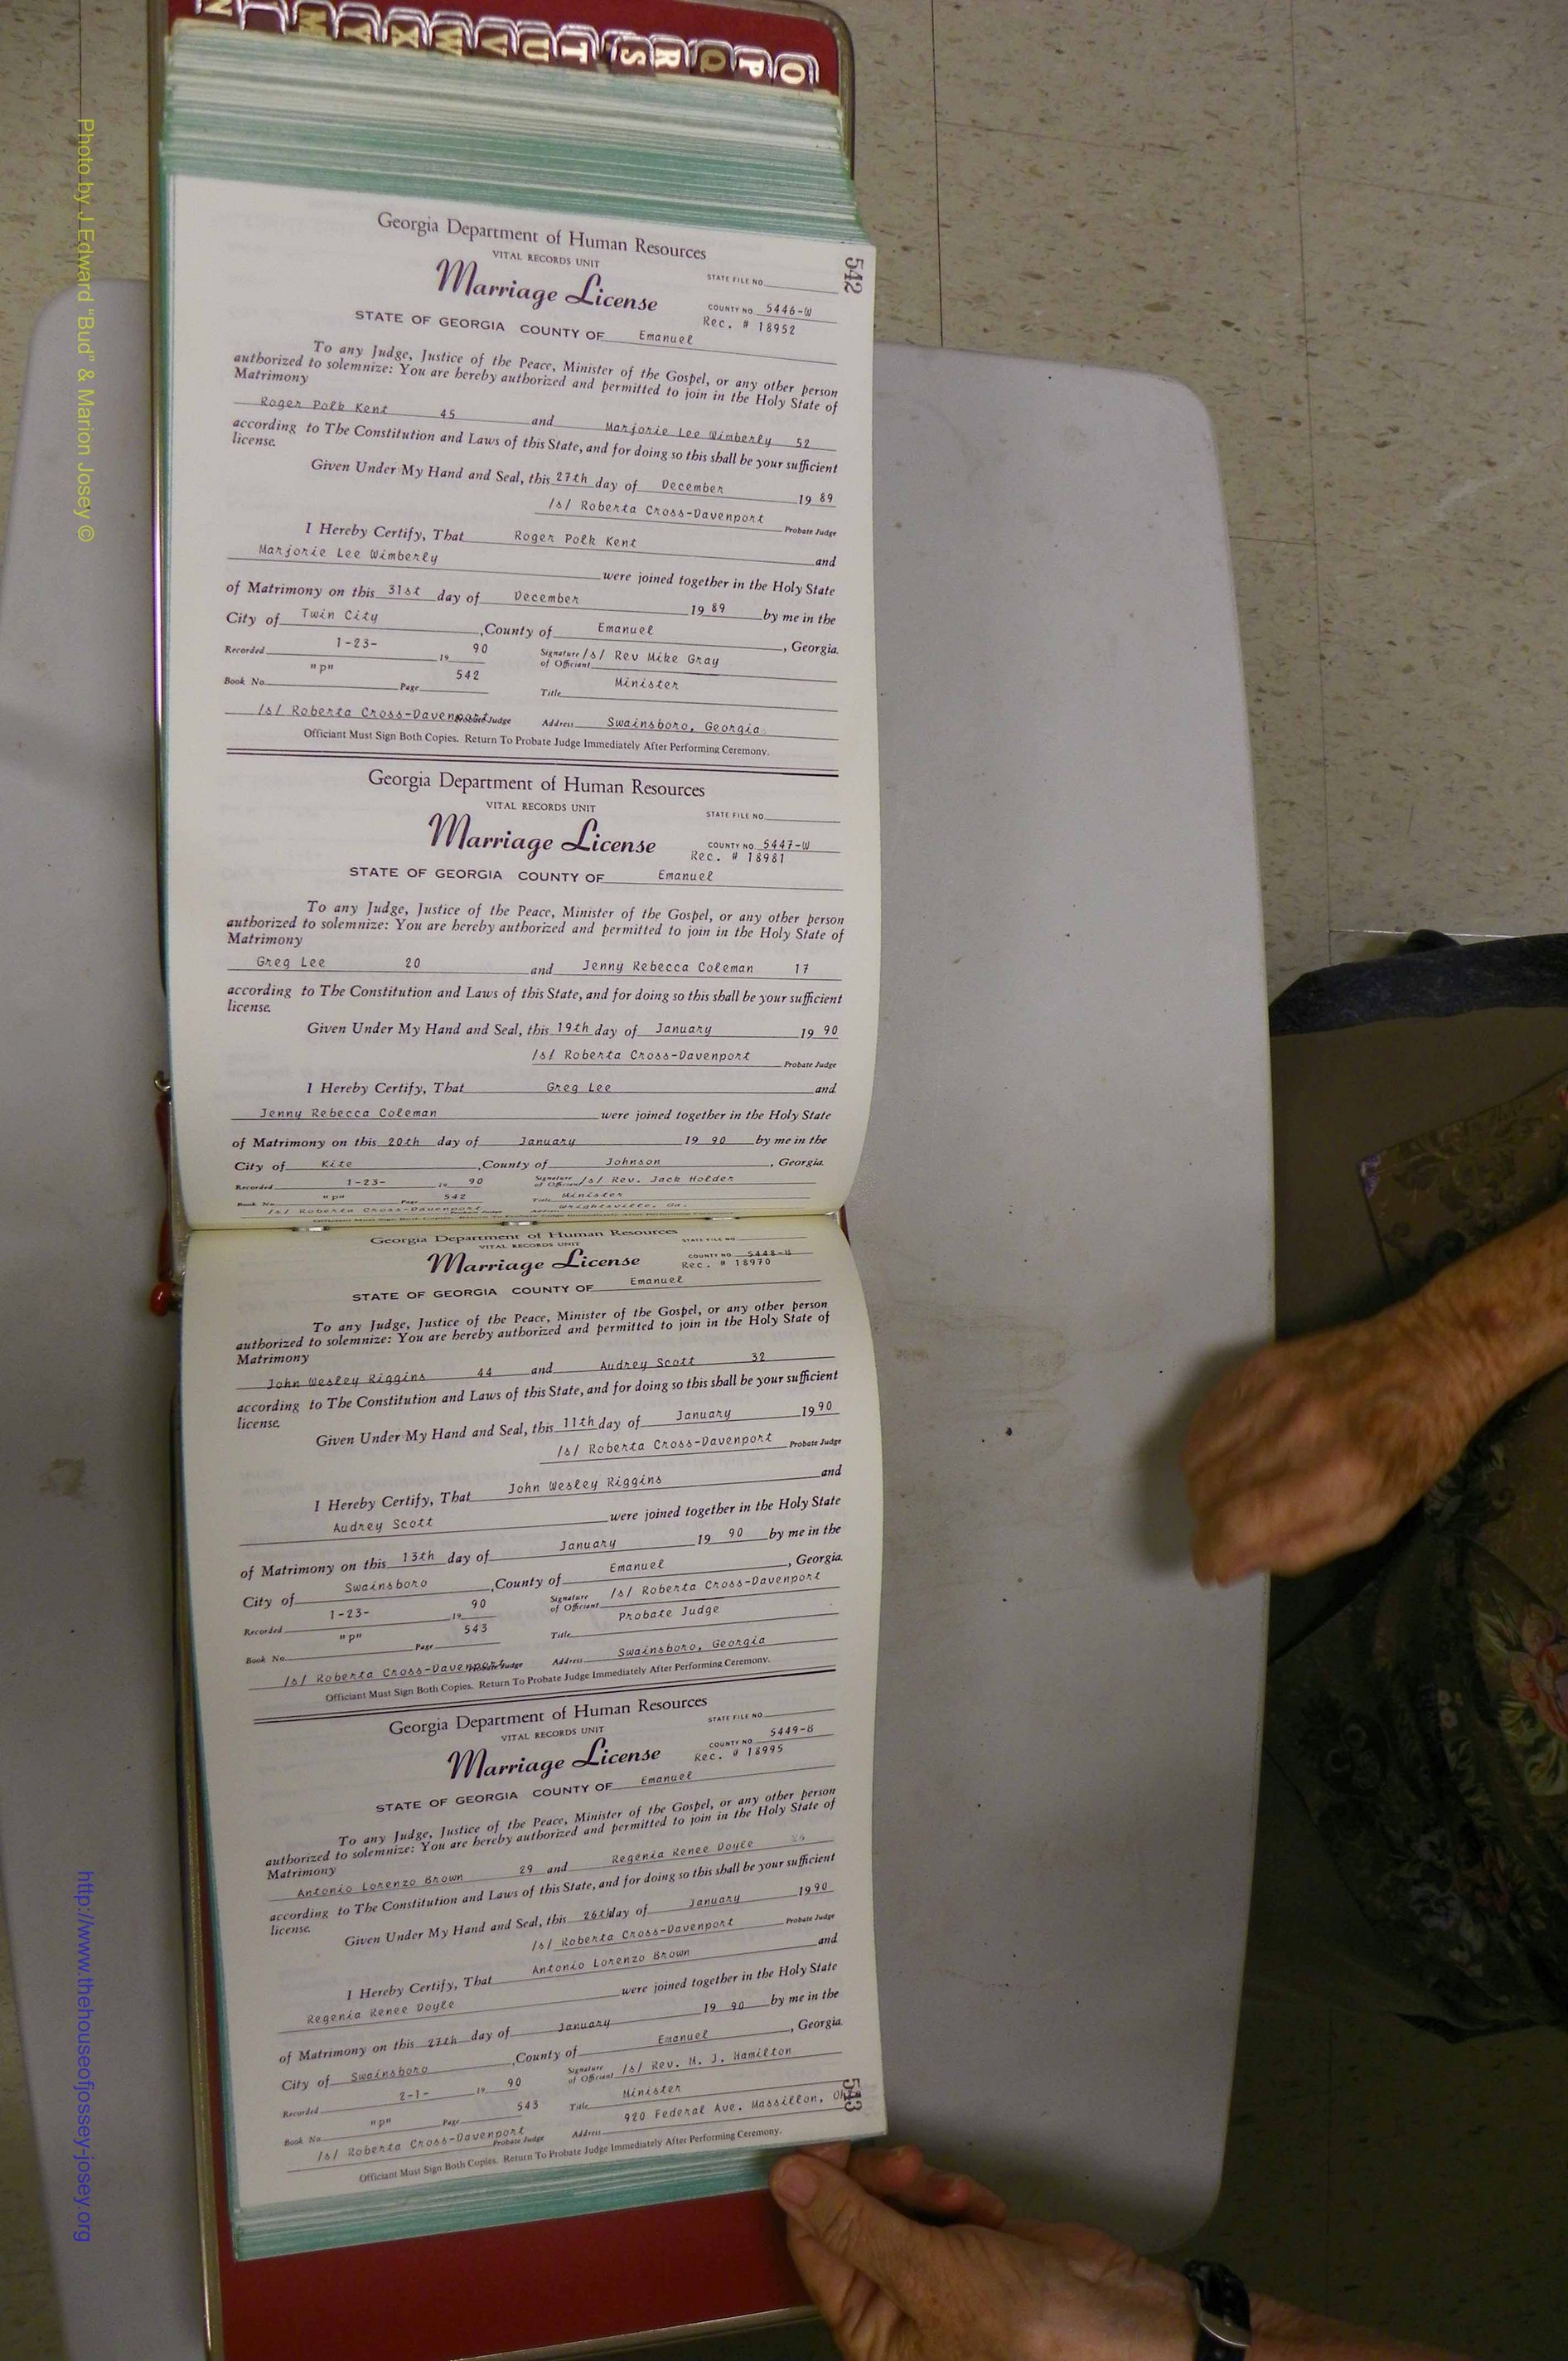 N M Y X W V U T S R Q P O
542
Georgia Department of Human Resources
VITAL RECORDS UNIT
STATE FILE NO.
Marriage License
COUNTY NO. 5446-W
Rec. # 18952
STATE OF GEORGIA COUNTY OF Emanuel
To any Judge, Justice of the Peace, Minister of the Gospel, or any other person
authorized to solemnize: You are hereby authorized and permitted to join in the Holy State of
Matrimony
Roger Polk Kent 45 and Marjorie Lee Wimberly 52
according to The Constitution and Laws of this State, and for doing so this shall be your sufficient
license.
Given Under My Hand and Seal, this 27th day of December 19 89
/s/ Roberta Cross-Davenport Probate Judge
I Hereby Certify, That Roger Polk Kent and
Marjorie Lee Wimberly were joined together in the Holy State
of Matrimony on this 31st day of December 19 89 by me in the
City of Twin City, County of Emanuel, Georgia.
Recorded 1-23- 19 90 Signature of Officiant /s/ Rev Mike Gray
Book No. "p" Page 542 Title Minister
/s/ Roberta Cross-Davenport Probate Judge Address Swainsboro, Georgia
Officiant Must Sign Both Copies. Return To Probate Judge Immediately After Performing Ceremony.
Georgia Department of Human Resources
VITAL RECORDS UNIT
STATE FILE NO.
Marriage License
COUNTY NO. 5447-W
Rec. # 18981
STATE OF GEORGIA COUNTY OF Emanuel
To any Judge, Justice of the Peace, Minister of the Gospel, or any other person
authorized to solemnize: You are hereby authorized and permitted to join in the Holy State of
Matrimony
Greg Lee 20 and Jenny Rebecca Coleman 17
according to The Constitution and Laws of this State, and for doing so this shall be your sufficient
license.
Given Under My Hand and Seal, this 19th day of January 19 90
/s/ Roberta Cross-Davenport Probate Judge
I Hereby Certify, That Greg Lee and
Jenny Rebecca Coleman were joined together in the Holy State
of Matrimony on this 20th day of January 19 90 by me in the
City of Kite, County of Johnson, Georgia.
Recorded 1-23- 19 90 Signature of Officiant /s/ Rev. Jack Holder
Book No. "p" Page 542 Title Minister
/s/ Roberta Cross-Davenport Probate Judge Address Wrightsville, Ga.
Officiant Must Sign Both Copies. Return To Probate Judge Immediately After Performing Ceremony.
Georgia Department of Human Resources
VITAL RECORDS UNIT
STATE FILE NO.
Marriage License
COUNTY NO. 5448-B
Rec. # 18970
STATE OF GEORGIA COUNTY OF Emanuel
To any Judge, Justice of the Peace, Minister of the Gospel, or any other person
authorized to solemnize: You are hereby authorized and permitted to join in the Holy State of
Matrimony
John Wesley Riggins 44 and Audrey Scott 32
according to The Constitution and Laws of this State, and for doing so this shall be your sufficient
license.
Given Under My Hand and Seal, this 11th day of January 19 90
/s/ Roberta Cross-Davenport Probate Judge
I Hereby Certify, That John Wesley Riggins and
Audrey Scott were joined together in the Holy State
of Matrimony on this 13th day of January 19 90 by me in the
City of Swainsboro, County of Emanuel, Georgia.
Recorded 1-23- 19 90 Signature of Officiant /s/ Roberta Cross-Davenport
Book No. "p" Page 543 Title Probate Judge
/s/ Roberta Cross-Davenport Probate Judge Address Swainsboro, Georgia
Officiant Must Sign Both Copies. Return To Probate Judge Immediately After Performing Ceremony.
Georgia Department of Human Resources
VITAL RECORDS UNIT
STATE FILE NO.
Marriage License
COUNTY NO. 5449-B
Rec. # 18995
STATE OF GEORGIA COUNTY OF Emanuel
To any Judge, Justice of the Peace, Minister of the Gospel, or any other person
authorized to solemnize: You are hereby authorized and permitted to join in the Holy State of
Matrimony
Antonio Lorenzo Brown 29 and Regenia Renee Doyle
according to The Constitution and Laws of this State, and for doing so this shall be your sufficient
license.
Given Under My Hand and Seal, this 26th day of January 19 90
/s/ Roberta Cross-Davenport Probate Judge
I Hereby Certify, That Antonio Lorenzo Brown and
Regenia Renee Doyle were joined together in the Holy State
of Matrimony on this 27th day of January 19 90 by me in the
City of Swainsboro, County of Emanuel, Georgia.
Recorded 2-1- 19 90 Signature of Officiant /s/ Rev. M. J. Hamilton
Book No. "p" Page 543 Title Minister
/s/ Roberta Cross-Davenport Probate Judge Address 920 Federal Ave. Massillon,
Officiant Must Sign Both Copies. Return To Probate Judge Immediately After Performing Ceremony.
543
Photo by J Edward "Bud" & Marion Josey ©
http://www.thehouseofjossey-josey.org